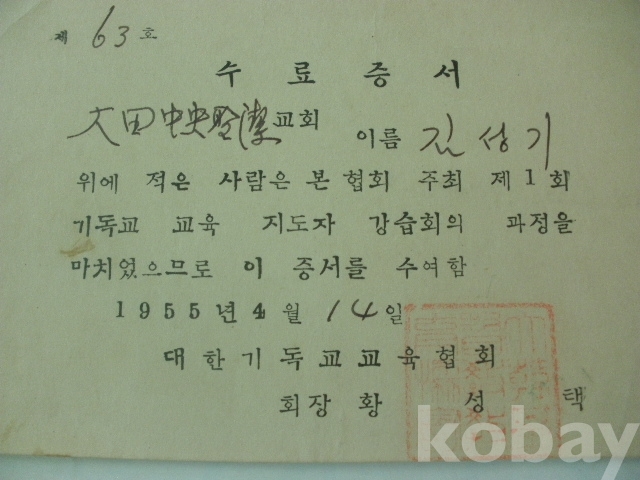 제 63 호
수료증서
大田中央聖潔교회 이름 김성기
위에 적은 사람은 본 협회 주최 제1회
기독교 교육 지도자 강습회의 과정을
마치었으므로 이 증서를 수여함
1955년4월 14일
대한기독교교육협회
회장 황성택
kobay